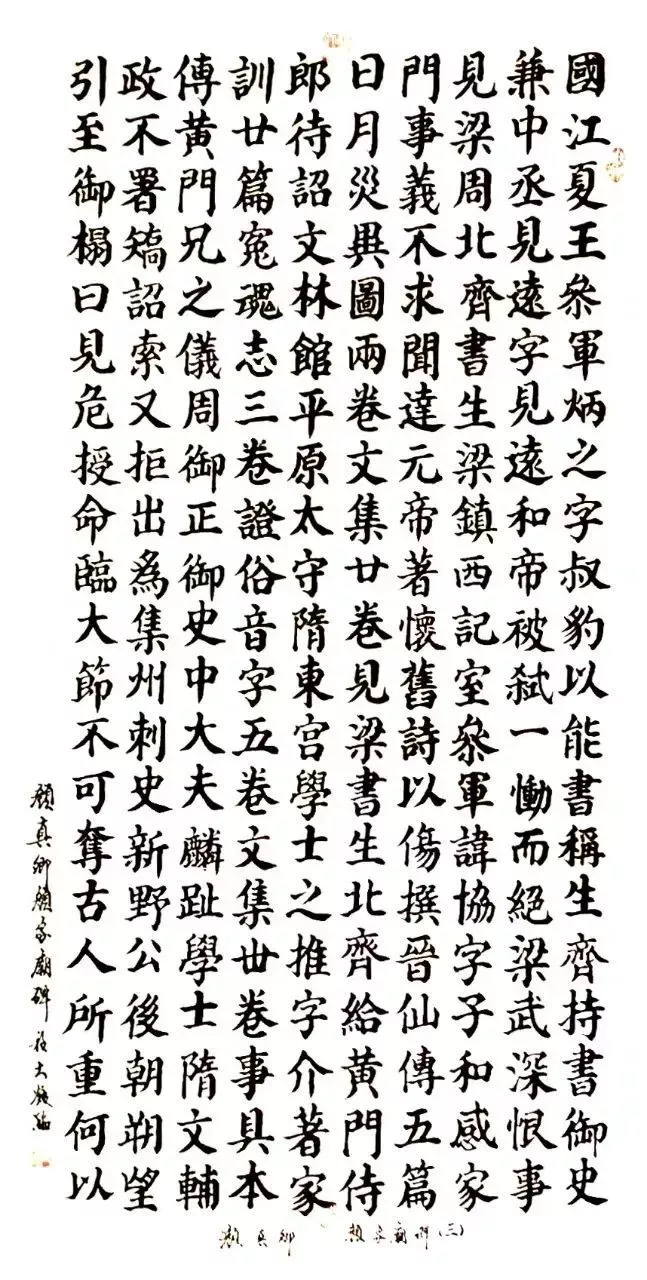 國江夏王叅軍炳之字叔豹以能書稱生齊持書御史
兼中丞見遠字見遠和帝被弑一慟而絕梁武深恨事
見梁周北齊書生梁鎮西記室叅軍諱協字子和感家
門事義不求聞達元帝著懷舊詩以傷撰晉仙傳五篇
日月災異圖兩卷文集廿卷見梁書生北齊給黃門侍
郎待詔文林館平原太守隋東宮學士之推字介著家
訓廿篇寃魂志三卷證俗音字五卷文集卅卷事具本
傳黃門兄之儀周御正御史中大夫麟趾學士隋文輔
政不署矯詔索又拒出為集州刺史新野公後朝朔望
引至御榻曰見危授命臨大節不可奪古人所重何以
顏真卿顏家廟碑
顏真卿 顏家廟碑(三)